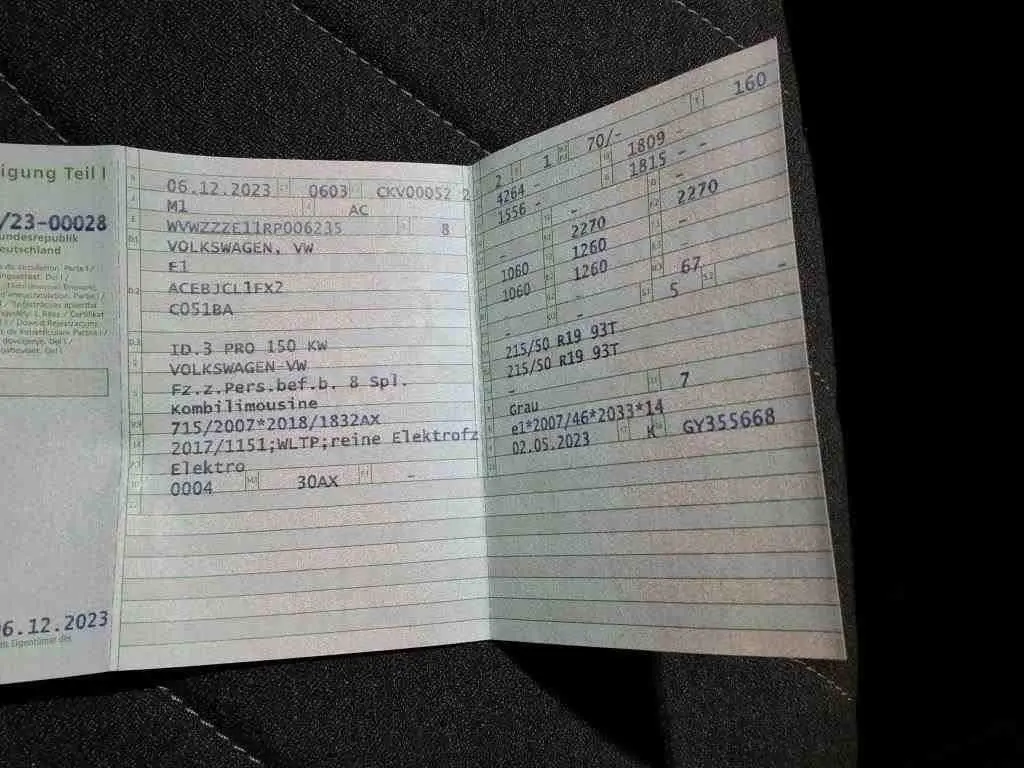 igung Teil I
/23-00028
undesrepublik
eutschland
6.12.2023
06.12.2023 0603 CKV00052 2
M1 AC
WVWZZZE11RP006235 8
VOLKSWAGEN, VW
E1
ACEBJCL1FX2
C051BA
ID.3 PRO 150 KW
VOLKSWAGEN-VW
Fz.z.Pers.bef.b. 8 Spl.
Kombilimousine
715/2007*2018/1832AX
2017/1151;WLTP;reine Elektrofz
Elektro
0004 30AX -
2 1 70/- 160
4264 - 1809 -
1556 - 1815 - -
- 2270 2270
1060 1260 -
1060 1260 67
- - 5 -
-
215/50 R19 93T
215/50 R19 93T
-
Grau 7
e1*2007/46*2033*14
02.05.2023 K GY355668